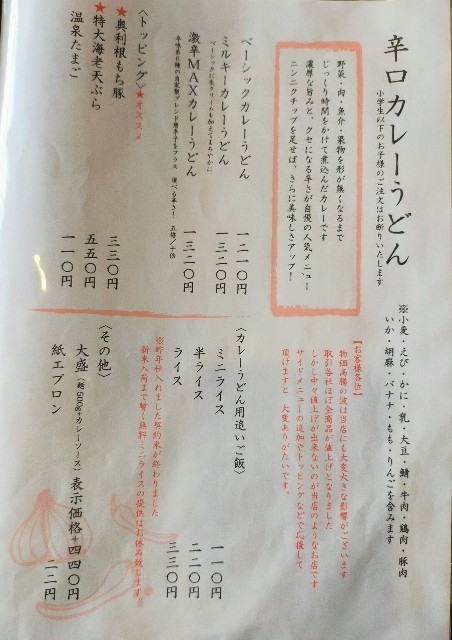 辛口カレーうどん
小学生以下のお子様のご注文はお断りいたします
野菜・肉・魚介・果物を形が無くなるまで
じっくり時間をかけて煮込んだカレーです
濃厚な旨みと、クセになる辛さが自慢の人気メニュー
ニンニクチップを足せば、さらに美味しさアップ！
ベーシックカレーうどん 一二一〇円
ミルキーカレーうどん 一三二〇円
ベーシックに生クリームを加えてまろやかに
激辛MAXカレーうどん 一三二〇円
辛味系8種の自家製ブレンド唐辛子をプラス 選べる辛さ！ 五倍/十倍
〈トッピング〉★オススメ
★奥利根もち豚 三三〇円
★特大海老天ぷら 五五〇円
温泉たまご 一一〇円
※小麦・えび・かに・乳・大豆・鯖・牛肉・鶏肉・豚肉
いか・胡麻・バナナ・もも・りんごを含みます
【お客様各位】
物価高騰の波は当店にも大変大きな影響がございます
取引各社ほぼ全商品が値上げとなりました
しかし中々値上げが出来ないのが当店のようなお店です
サイドメニューの追加やトッピングなどで応援して
頂けますと 大変ありがたいです。
〈カレーうどん用追いご飯〉
ミニライス 一一〇円
半ライス 二二〇円
ライス 三三〇円
※昨年仕入れました契約米が終わりました
新米入荷まで暫く無料ミニライスの提供はお休み致します。
〈その他〉
大盛(麺500g+カレーソース) 表示価格+四四〇円
紙エプロン 二二円